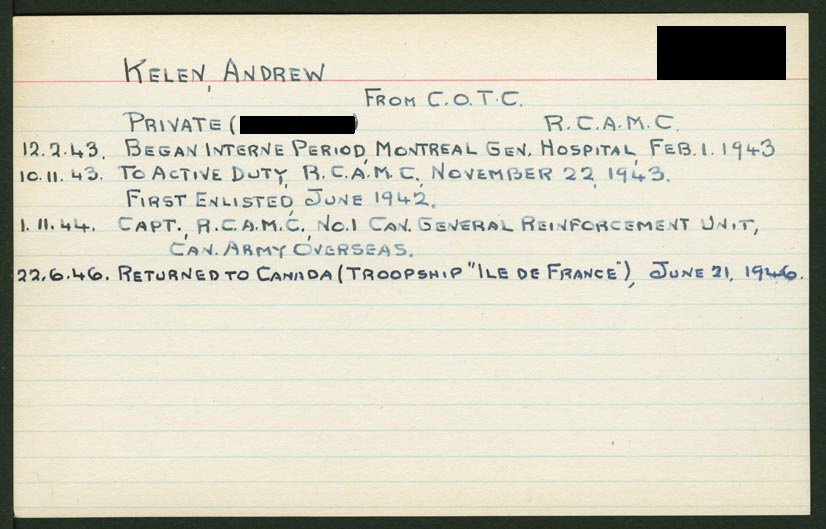 KELEN, ANDREW
FROM C.O.T.C.
PRIVATE ( ) R.C.A.M.C.
12.2.43. BEGAN INTERNE PERIOD, MONTREAL GEN. HOSPITAL, FEB. 1. 1943
10.11.43. TO ACTIVE DUTY, R.C.A.M.C., NOVEMBER 22, 1943.
FIRST ENLISTED, JUNE 1942.
1.11.44. CAPT., R.C.A.M.C., NO.1 CAN. GENERAL REINFORCEMENT UNIT,
CAN. ARMY OVERSEAS.
22.6.46. RETURNED TO CANADA (TROOPSHIP "ILE DE FRANCE"), JUNE 21, 1946.